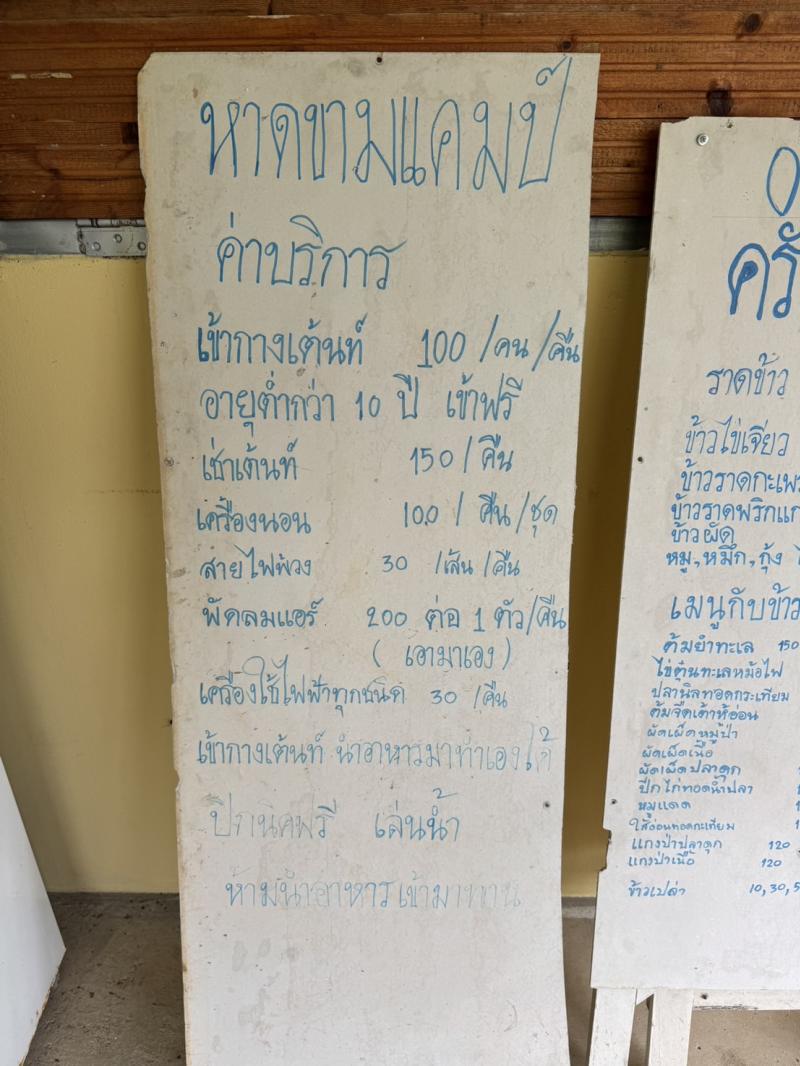 หาดขามแคมป์
ค่าบริการ
เข้ากางเต้นท์ 100 /คน /คืน
อายุต่ำกว่า 10 ปี เข้าฟรี
เช่าเต้นท์ 150 / คืน
เครื่องนอน 100 / คืน /ชุด
สายไฟพ่วง 30 /เส้น /คืน
พัดลมแอร์ 200 ต่อ 1 ตัว/คืน
( เอามาเอง )
เครื่องใช้ไฟฟ้าทุกชนิด 30 /คืน
เข้ากางเต้นท์ นำอาหารมาทำเองได้
ปิกนิคฟรี เล่นน้ำ
ห้ามนำอาหารเข้ามาทาน
ราดข้าว
ข้าวไข่เจียว
ข้าวราดกะเพร
ข้าวราดพริกแก
ข้าวผัด
หมู,หมึก,กุ้ง
เมนูกับข้าว
ต้มยำทะเล 150
ไข่ตุ๋นทะเลหม้อไฟ
ปลานิลทอดกระเทียม
ต้มจืดเต้าหู้อ่อน
ผัดเผ็ดหมูป่า
ผัดเผ็ดเนื้อ
ผัดเผ็ดปลาดุก
ปีกไก่ทอดน้ำปลา
หมูแดด
ไส้อ่อนทอดกะเทียม
แกงป่าปลาดุก 120
แกงป่าเนื้อ 120
ข้าวเปล่า 10,30,5